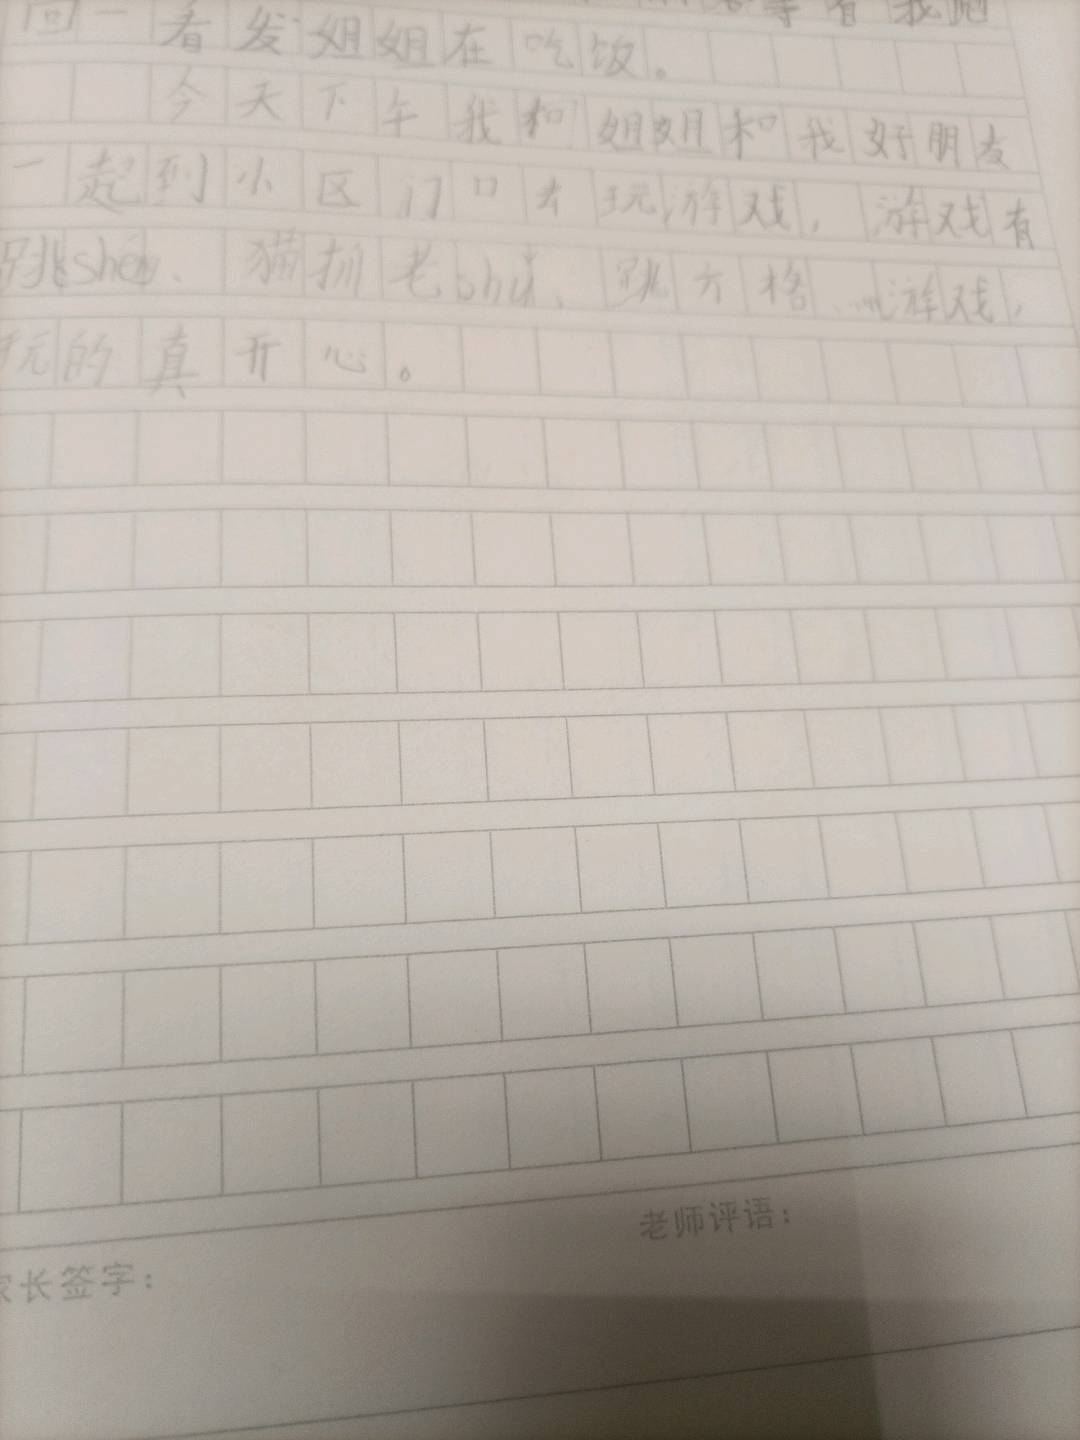 等着我跑
回一看发姐姐在吃饭。
今天下午我和姐姐和我好朋友
一起到小区门口去玩游戏，游戏有
跳shén、猫抓老shǔ、跳方格…游戏，
玩的真开心。
老师评语：
家长签字：